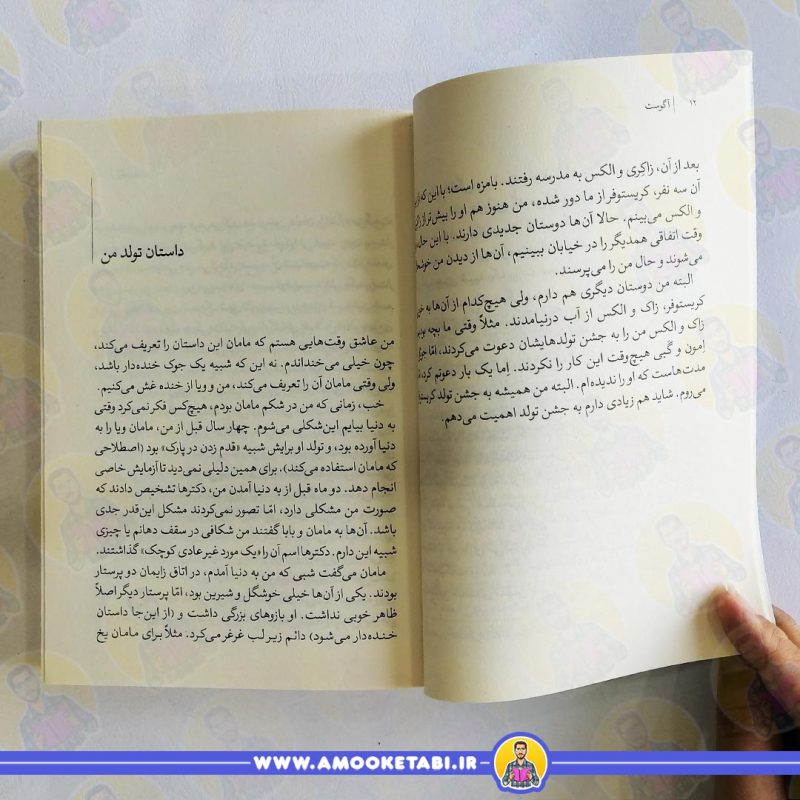 ۱۲ | آگوست
بعد از آن، زاکِری و الکس به مدرسه رفتند. بامزه است؛ با این که از
آن سه نفر، کریستوفر از ما دور شده، من هنوز هم او را بیش‌تر از زاک
و الکس می‌بینم. حالا آن‌ها دوستان جدیدی دارند. با این حال
وقت اتفاقی همدیگر را در خیابان ببینیم، آن‌ها از دیدن من خوشحال
می‌شوند و حال من را می‌پرسند.
البته من دوستان دیگری هم دارم، ولی هیچ‌کدام از آن‌ها به خوبی
کریستوفر، زاک و الکس از آب درنیامدند. مثلاً وقتی ما بچه بودیم
زاک و الکس من را به جشن تولدهایشان دعوت می‌کردند، امّا
اِمون و گَبی هیچ‌وقت این کار را نکردند. اِما یک بار دعوتم کرد،
مدت‌هاست که او را ندیده‌ام. البته من همیشه به جشن تولد کریستوفر
می‌روم. شاید هم زیادی دارم به جشن تولد اهمیت می‌دهم.
داستان تولد من
من عاشق وقت‌هایی هستم که مامان این داستان را تعریف می‌کند،
چون خیلی می‌خنداندم. نه این که شبیه یک جوک خنده‌دار باشد،
ولی وقتی مامان آن را تعریف می‌کند، من و ویا از خنده غش می‌کنیم.
خب، زمانی که من در شکم مامان بودم، هیچ‌کس فکر نمی‌کرد وقتی
به دنیا بیایم این‌شکلی می‌شوم. چهار سال قبل از من، مامان ویا را به
دنیا آورده بود، و تولد او برایش شبیه «قدم زدن در پارک» بود (اصطلاحی
که مامان استفاده می‌کند)، برای همین دلیلی نمی‌دید تا آزمایش خاصی
انجام دهد. دو ماه قبل از به دنیا آمدن من، دکترها تشخیص دادند که
صورت من مشکلی دارد، امّا تصور نمی‌کردند مشکل این‌قدر جدی
باشد. آن‌ها به مامان و بابا گفتند من شکافی در سقف دهانم یا چیزی
شبیه این دارم. دکترها اسم آن را «یک مورد غیرعادی کوچک» گذاشتند.
مامان می‌گفت شبی که من به دنیا آمدم، در اتاق زایمان دو پرستار
بودند. یکی از آن‌ها خیلی خوشگل و شیرین بود، امّا پرستار دیگر اصلاً
ظاهر خوبی نداشت. او بازوهای بزرگی داشت و (از این‌جا داستان
خنده‌دار می‌شود) دائم زیر لب غرغر می‌کرد. مثلاً برای مامان یخ
WWW.AMOOKETABI.IR